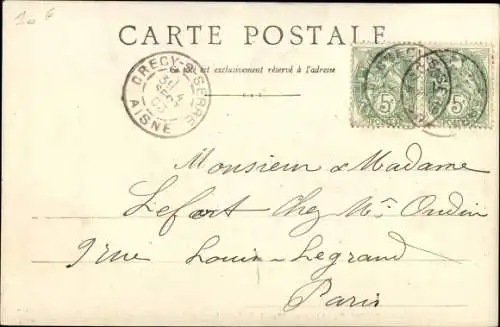 10 €
CARTE POSTALE
Ce côté est exclusivement réservé à l'adresse
CRECY-S-SERRE
AISNE
5
5
Monsieur & Madame
Lefort Chez Mr. Oudin
9 rue Louis-Legrand
Paris